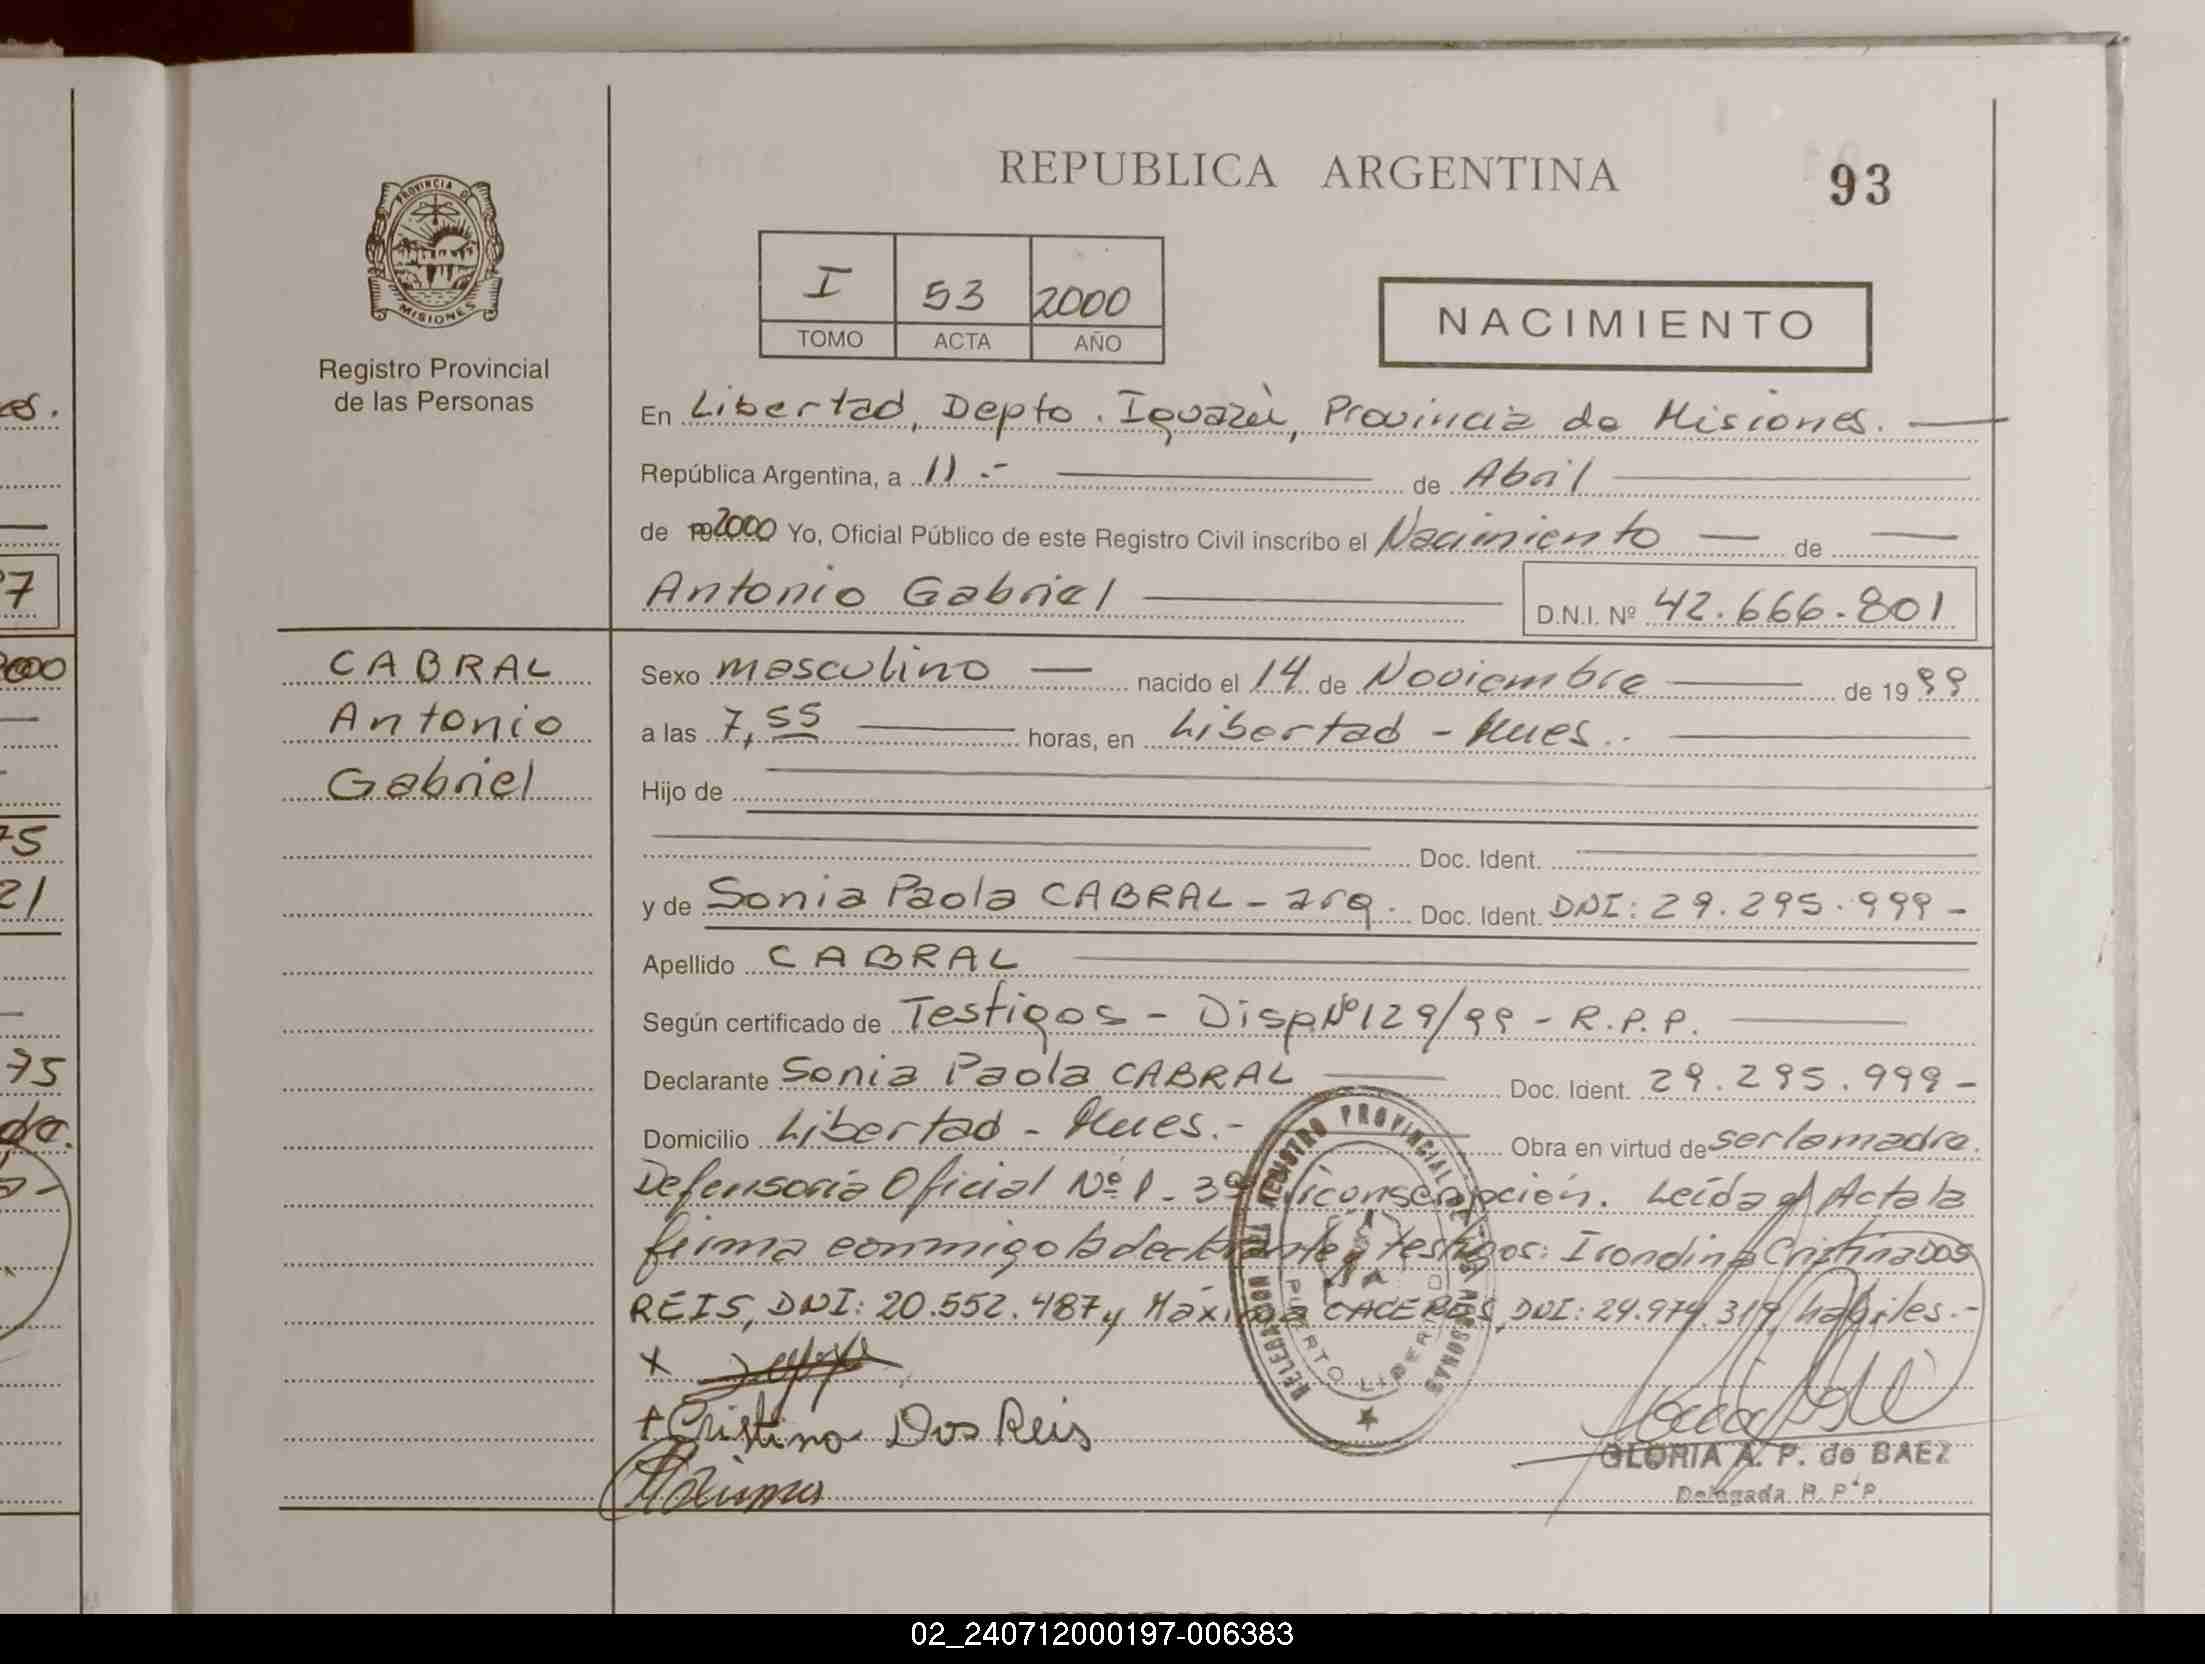 REPUBLICA ARGENTINA
93
PROVINCIA DE
MISIONES
Registro Provincial
de las Personas
I 53 2000
TOMO ACTA AÑO
NACIMIENTO
En Libertad, Depto. Iguazú, Provincia de Misiones.
República Argentina, a 11.- de Abril
de 2000 Yo, Oficial Público de este Registro Civil inscribo el Nacimiento de
Antonio Gabriel D.N.I. Nº 42.666.801
CABRAL
Antonio
Gabriel
Sexo masculino nacido el 14 de Noviembre de 1999
a las 7,55 horas, en Libertad - Mnes.
Hijo de
Doc. Ident.
y de Sonia Paola CABRAL - arg. Doc. Ident. DNI: 29.295.999-
Apellido CABRAL
Según certificado de Testigos - Disp Nº 129/99 - R.P.P.
Declarante Sonia Paola CABRAL Doc. Ident. 29.295.999-
Domicilio Libertad - Mnes.- Obra en virtud de ser la madre.
Defensoría Oficial Nº 1 - 3º Circonscripción. Leída el Acta la
firma conmigo la declarante y testigos: Irondina Cristina DOS
REIS, DNI: 20.552.487 y Máxima CACERES, DNI: 24.974.319, hábiles.-
x
+ Cristina Dos Reis
Máxima
DELEGACION DEL REGISTRO PROVINCIAL DE LAS PERSONAS
PUERTO LIBERTAD
GLORIA A. P. de BAEZ
Delegada R. P. P.
es.
7
2000
75
21
75
de.
02_240712000197-006383